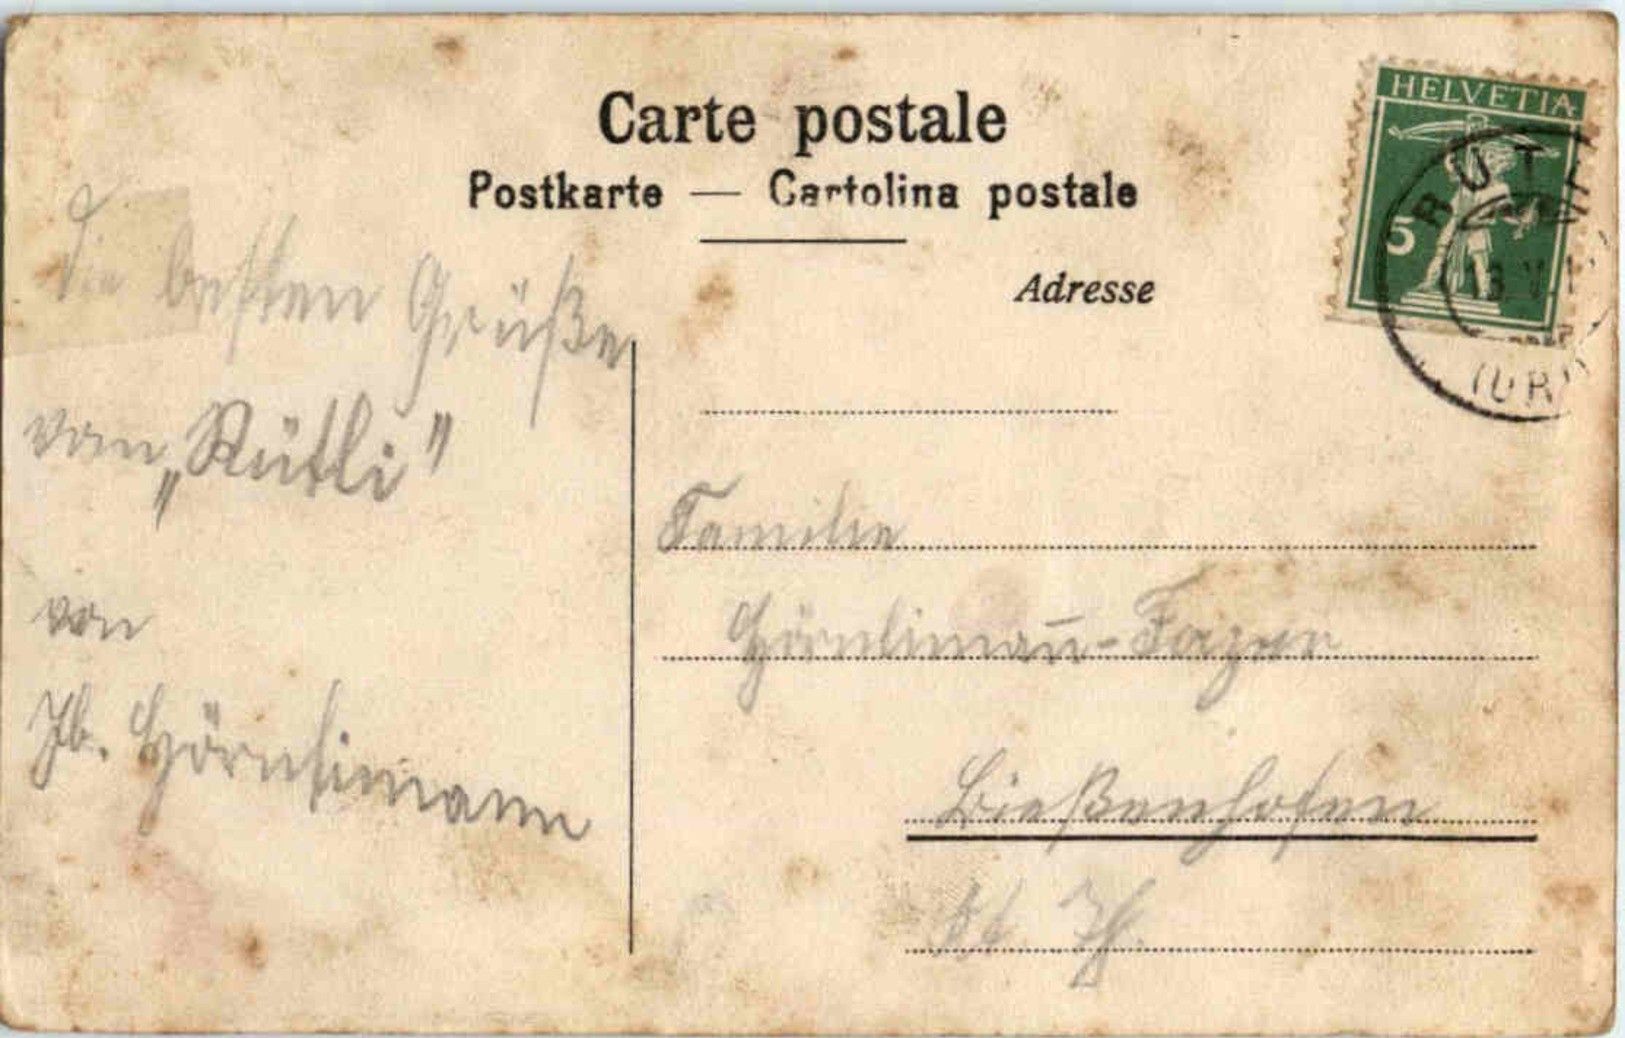 Carte postale
Postkarte — Cartolina postale
Adresse
HELVETIA
5
RÜTLI
(URI)
Die besten Grüße
vom „Rütli"
von
Jb. Hörnlimann
Familie
Hörnlimañ-Fazer
Bießenhofen
Kt. Th.